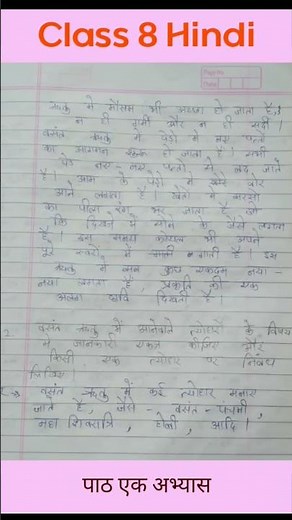 Class 8 Hindi
ऋतु में मौसम भी अच्छा हो जाता है,
न ही गर्मी और न ही सर्दी।
वसंत ऋतु में पेड़ो में नए पत्तों
का आगमन शुरू हो जाता है। सभी
पेड़ नए-नए पत्तों से लद जाते
है। आम के पेड़ो में बौर और
आने लगता है। खेतों में सरसों
का पीला रंग भर जाता है जो
कि दिखने में सोने के जैसे लगता
है। इस समय कोयल भी अपने
स्वरों में गाती है। इस
ऋतु में सब कुछ एकदम नया-
नया लगता है, प्रकृति की एक
अलग छवि दिखती है।
2. वसंत ऋतु में आनेवाले त्योहारों के विषय
में जानकारी एकत्र कीजिए और
किसी एक त्योहार पर निबंध
लिखिए।
वसंत ऋतु में कई त्योहार मनाए
जाते है, जैसे - वसंत-पंचमी,
महा शिवरात्रि, होली, आदि।
पाठ एक अभ्यास